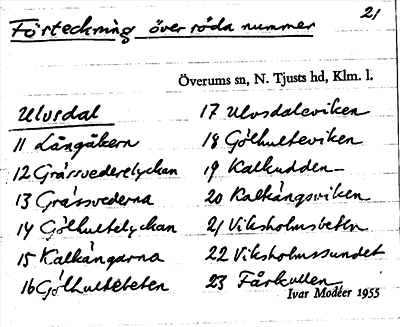 21
Förteckning över röda nummer
Överums sn, N. Tjusts hd, Klm. l.
Ulvsdal
11 Långåkern
12 Gräsvederelyckan
13 Gräsvederna
14 Gölhultelyckan
15 Kalkängarna
16 Gölhultebeten
17 Ulvsdaleviken
18 Gölhulteviken
19 Kalkudden
20 Kalkängsviken
21 Viksholmsbeten
22 Viksholmssundet
23 Fårkullen
Ivar Modéer 1955